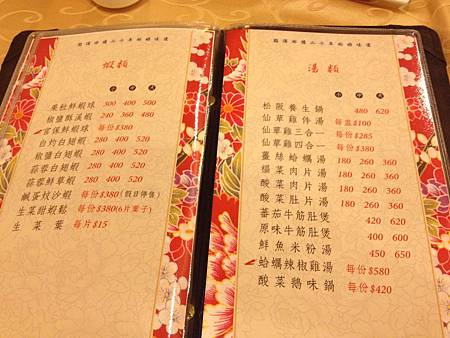 蝦類
小 中 大
果杜鮮蝦球 300 400 500
椒鹽酥溪蝦 240 360 480
宮保鮮蝦球 每份$380
白灼白刺蝦 280 400 520
椒鹽白刺蝦 280 400 520
蒜蓉白刺蝦 280 400 520
蒜蓉鮮草蝦 280 400 520
鹹蛋杏沙蝦 每份$380(假日停售)
生菜甜蝦鬆 每份$380(6片葉子)
生菜葉 每片$15
湯類
小 中 大
松阪養生鍋 480 620
仙草雞件湯 每盅$100
仙草雞三合一 每份$285
仙草雞四合一 每份$380
薑絲蛤蠣湯 180 260 360
榨菜肉片湯 180 260 360
酸菜肉片湯 180 260 360
酸菜肚片湯 180 260 360
蕃茄牛筋肚煲 420 620
原味牛筋肚煲 400 600
鮮魚米粉湯 450 650
蛤蠣辣椒雞湯 每份$580
酸菜鵝味鍋 每份$420